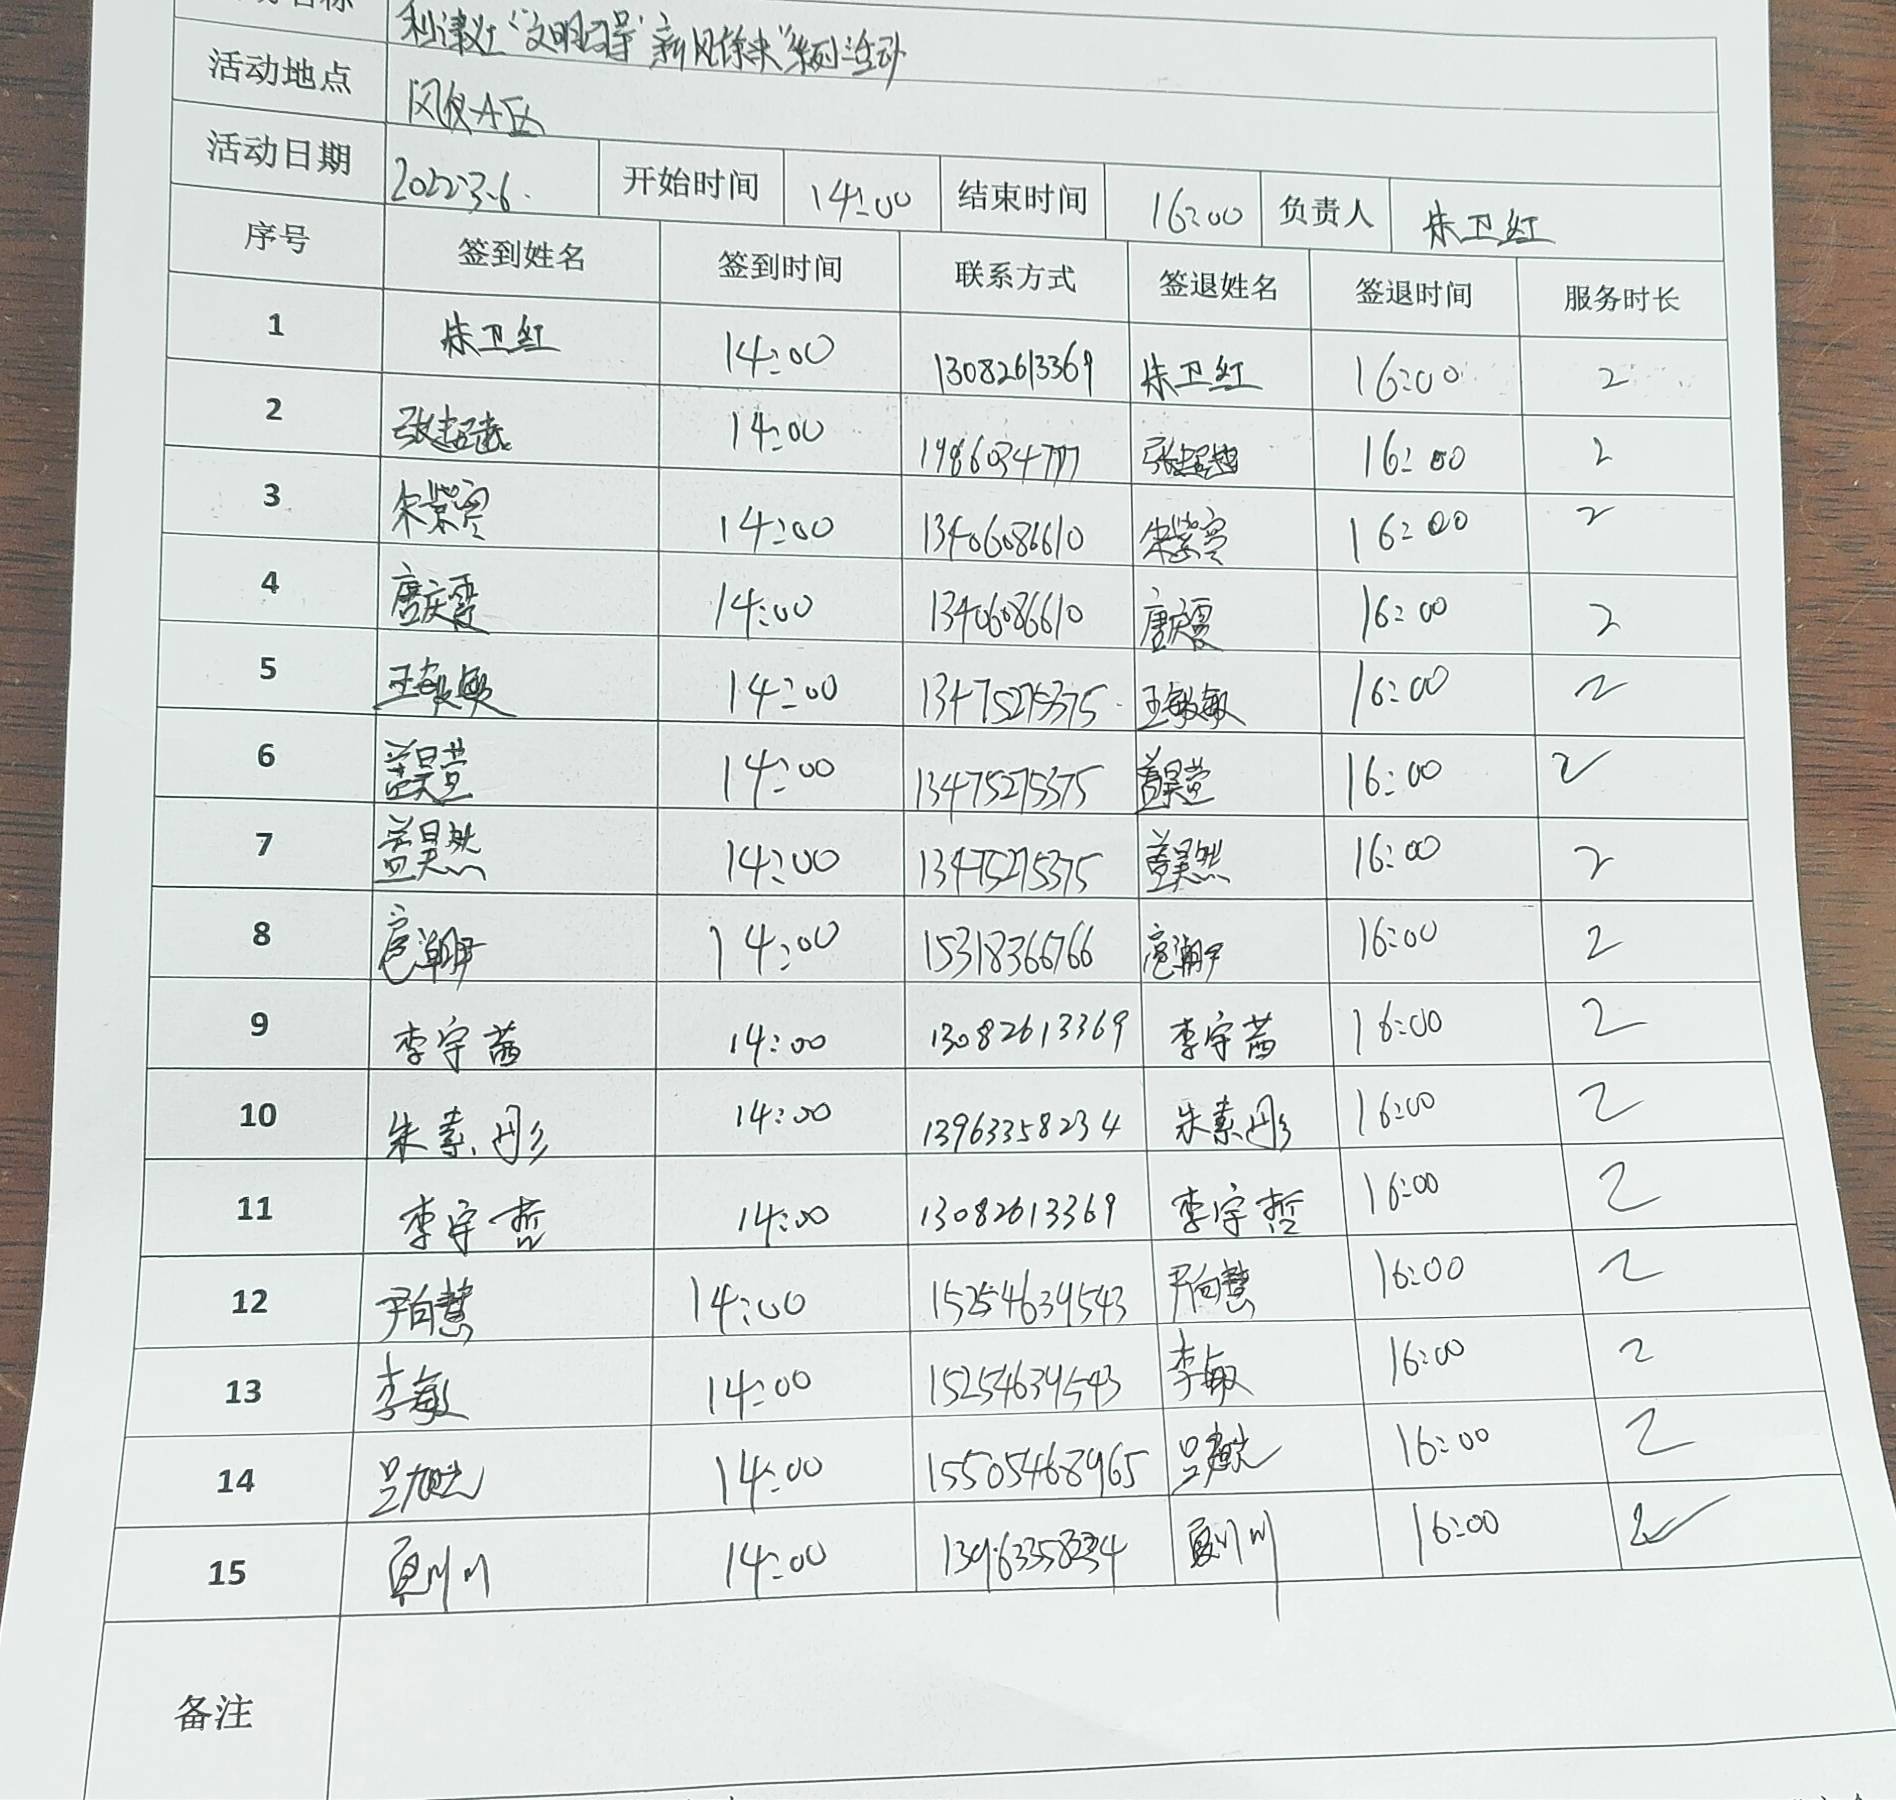 利津义工"文明引导 新风徐来"系列活动
活动地点 凤凰A区
活动日期 2022.3.6. 开始时间 14:00 结束时间 16:00 负责人 朱卫红
序号 签到姓名 签到时间 联系方式 签退姓名 签退时间 服务时长
1 朱卫红 14:00 13082613369 朱卫红 16:00 2
2 张超越 14:00 张超越 16:00 2
3 宋紫雲 14:00 13406086610 宋紫雲 16:00 2
4 唐庆霞 14:00 13406086610 唐庆霞 16:00 2
5 王敏敏 14:00 13475275375 王敏敏 16:00 2
6 盖昊萱 14:00 13475275375 盖昊萱 16:00 2
7 盖昊然 14:00 13475275375 盖昊然 16:00 2
8 扈潮尹 14:00 15318366766 扈潮尹 16:00 2
9 李宇茜 14:00 13082613369 李宇茜 16:00 2
10 朱素彤 14:00 13963358234 朱素彤 16:00 2
11 李宇哲 14:00 13082613369 李宇哲 16:00 2
12 尹向慧 14:00 15254639543 尹向慧 16:00 2
13 李敏 14:00 15254639543 李敏 16:00 2
14 吕旭光 14:00 15505468965 吕旭光 16:00 2
15 夏川川 14:00 13963358234 夏川川 16:00 2
备注